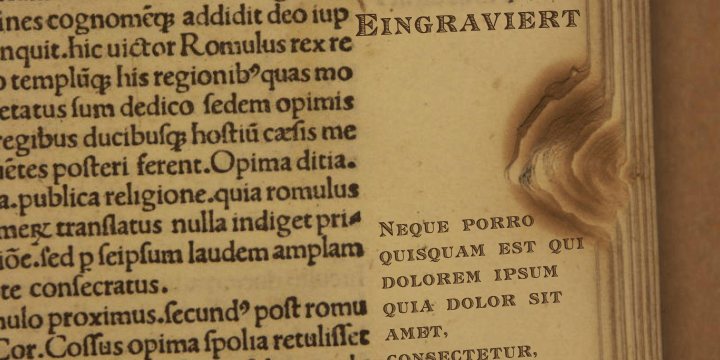 ines cognomēq̄ꝫ addidit deo iup
nquit.hic uictor Romulus rex re
o templūq̄ꝫ his regionibꝰquas mo
etatus ſum dedico ſedem opimis
regibus ducibuſq̄ꝫ hoſtiū cæſis me
iētes poſteri ferent.Opima ditia.
a.publica religione.quia romulus
tranſlatus nulla indiget pri
iōe.ſed p ſeipſum laudem amplam
te conſecratus.
nulo proximus.ſecundꝰ poſt romu
Cor.Coſſus opima ſpolia retuliſſet
EINGRAVIERT
NEQUE PORRO
QUISQUAM EST QUI
DOLOREM IPSUM
QUIA DOLOR SIT
AMET,
CONSECTETUR,